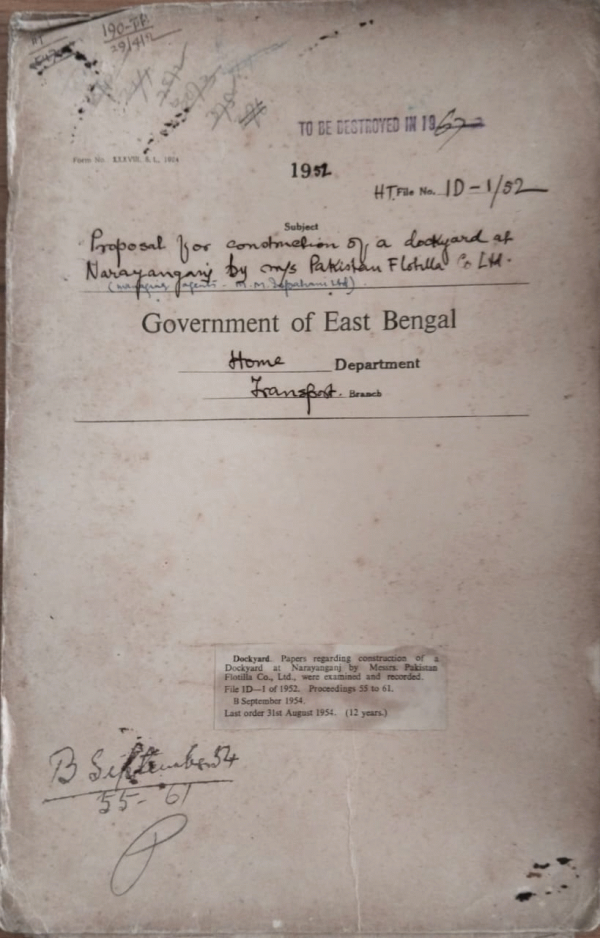 190-TR
29/4/2
TO BE DESTROYED IN 19
Form No. XXXVIII, S. L., 1024
1952
HT. File No. 1D-1/52
Subject
Proposal for construction of a dockyard at
Narayanganj by m/s Pakistan Flotilla Co Ltd.
(managing agents - M. M. Ispahani Ltd).
Government of East Bengal
Home Department
Transport. Branch
Dockyard. Papers regarding construction of a
Dockyard at Narayanganj by Messrs. Pakistan
Flotilla Co., Ltd., were examined and recorded.
File 1D—1 of 1952. Proceedings 55 to 61.
B September 1954.
Last order 31st August 1954. (12 years.)
B September 54
55-61